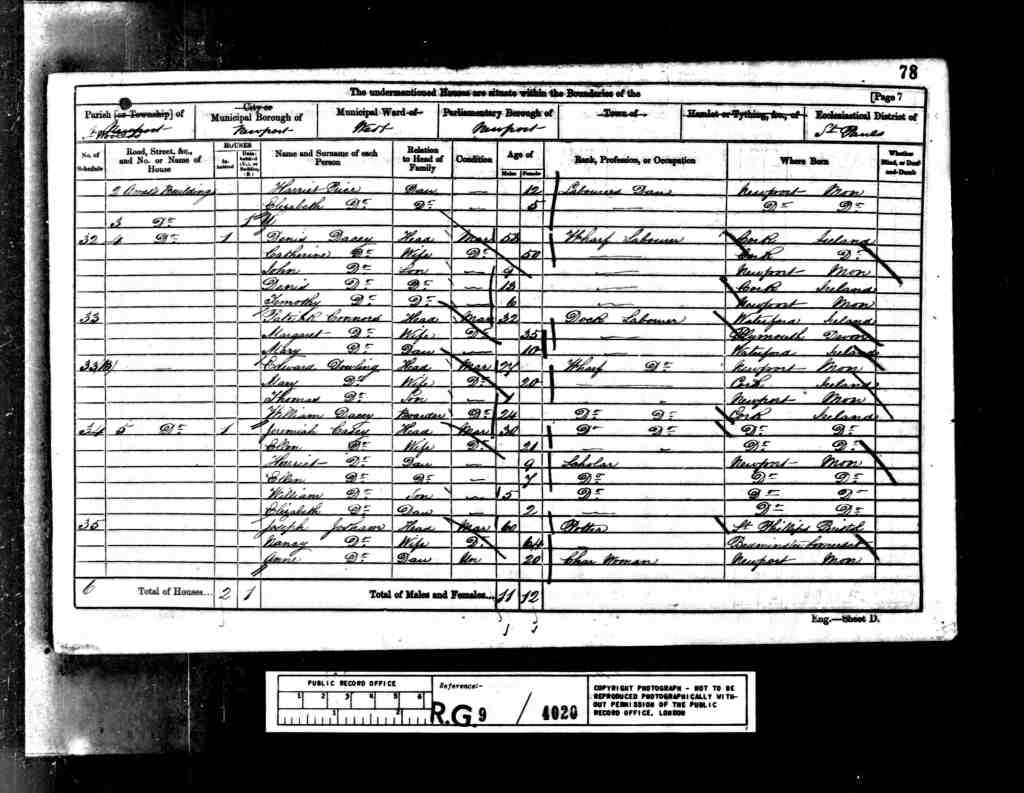 78
The undermentioned Houses are situate within the Boundaries of the
[Page 7
Parish [or Township] of City or Municipal Borough of Municipal Ward of Parliamentary Borough of Town of Hamlet or Tything, &c., of Ecclesiastical District of
Newport West Newport St Pauls
No. of Schedule Road, Street, &c., and No. or Name of House HOUSES Inhabited Uninhabited Name and Surname of each Person Relation to Head of Family Condition Age of Males Females Rank, Profession, or Occupation Where Born Whether Blind, or Deaf-and-Dumb
2 Buildings Harriet Rice Dau — 12 Labourers Dau Newport Mon
Elizabeth Do Do — 5 Do Do
3 Do 1
32 4 Do 1 Denis Dacey Head Mar 58 Wharf Labourer Cork Ireland
Catherine Do Wife Do 50 Cork Do
John Do Son — 9 Newport Mon
Denis Do Do — 13 Cork Ireland
Timothy Do Do — 6 Newport Mon
33 Patrick Connors Head Mar 32 Dock Labourer Waterford Ireland
Margaret Do Wife Do 35 Plymouth Devon
Mary Do Dau — 10 Waterford Ireland
33 Edward Dowling Head Mar 27 Wharf Do Newport Mon
Mary Do Wife Do 20 Cork Ireland
Thomas Do Son Newport Mon
William Dacey Boarder Do 24 Do Do Cork Ireland
34 5 Do 1 Jeremiah Casey Head Mar 30 Do Do Do Do
Ellen Do Wife Do 21 Do Do
Harriet Do Dau — 9 Scholar Newport Mon
Ellen Do Do — 7 Do Do Do
William Do Son 5 Do Do Do
Elizabeth Do Dau — 2 Do Do
35 Joseph Johnson Head Mar 60 Potter St Phillips Bristol
Nancy Do Wife Do 64 Bedminster Somerset
Anne Do Dau Un 20 Char Woman Newport Mon
6 Total of Houses... 2 1 Total of Males and Females... 11 12
Eng.—Sheet D.
PUBLIC RECORD OFFICE
1 2 3 4 5 6
1 2
Reference:-
R.G. 9 / 4020
COPYRIGHT PHOTOGRAPH - NOT TO BE
REPRODUCED PHOTOGRAPHICALLY WITH-
OUT PERMISSION OF THE PUBLIC
RECORD OFFICE, LONDON